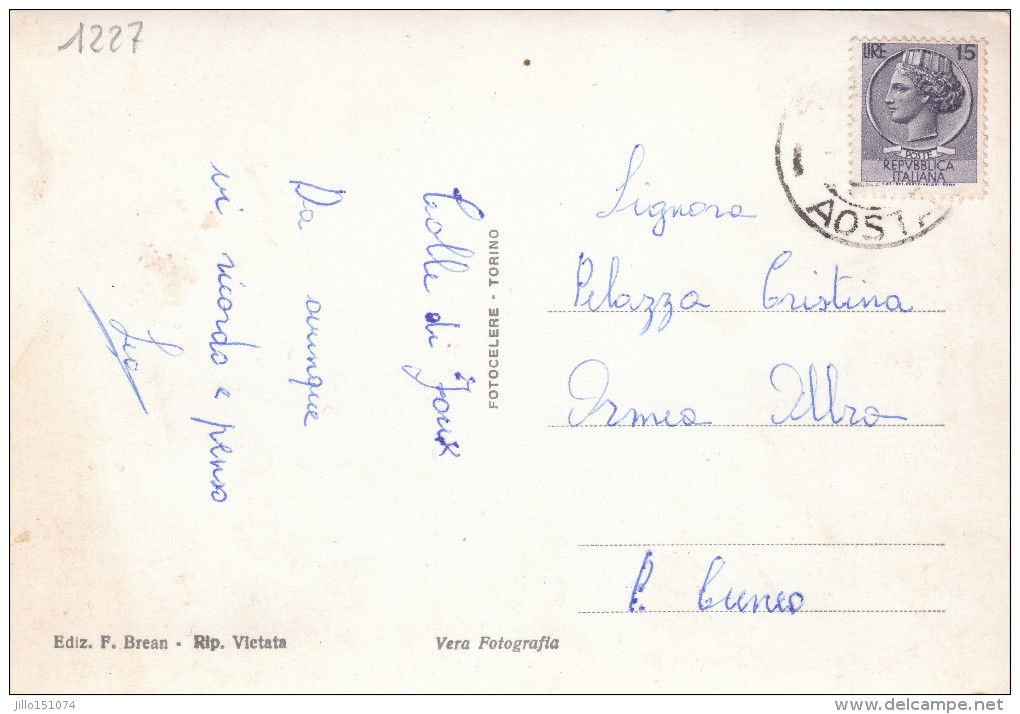 1227
LIRE 15
POSTE
REPVBBLICA
ITALIANA
AOSTA
Colle di Joux
Da ovunque
vi ricordo e penso
FOTOCELERE - TORINO
Signora
Pelazza Cristina
Ormea
P. Cuneo
Ediz. F. Brean - Rip. Vietata
Vera Fotografia
jillo151074
delcampe.net